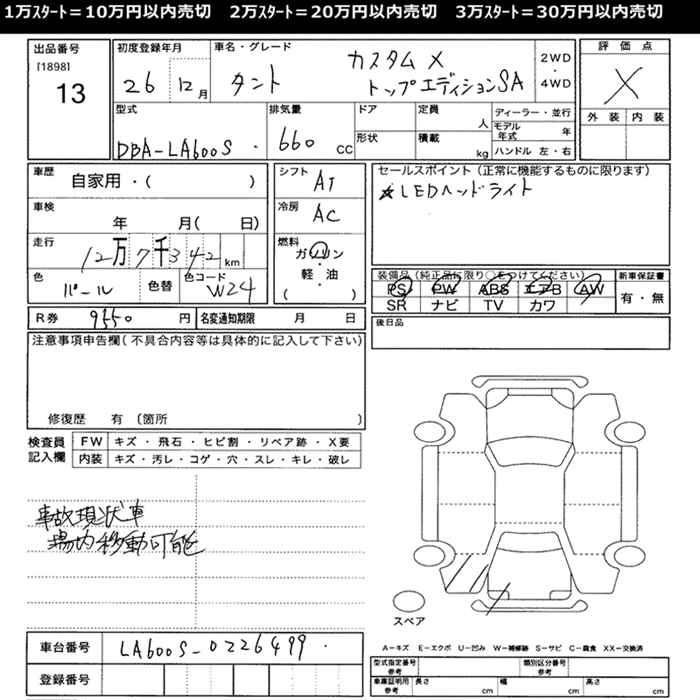 1万スタート＝10万円以内売切　2万スタート＝20万円以内売切　3万スタート＝30万円以内売切
出品番号
[1898]
13
初度登録年月
26 12月
車名・グレード
タント
カスタム X
トップエディションSA
2WD
・
4WD
評価点
X
外装 内装
型式
DBA-LA600S
排気量
660 CC
ドア
形状
定員
人
積載
kg
ディーラー・並行
モデル年式 年
ハンドル 左・右
車歴
自家用・（　　）
車検
年　月（　日）
走行
12万7千342 km
色
パール
色替
色コード
W24
シフト
AT
冷房
AC
燃料
ガソリン
・
軽・油
（　　）
セールスポイント（正常に機能するものに限ります）
LEDヘッドライト
装備品（純正品に限り○をつけてください）
PS PW ABS エアB AW
SR ナビ TV カワ
新車保証書
有・無
R券 9550 円
名変通知期限　月　日
後日品
注意事項申告欄（不具合内容等は具体的に記入して下さい）
修復歴　有　〔箇所　）
検査員
記入欄
FW キズ・飛石・ヒビ割・リペア跡・X要
内装 キズ・汚レ・コゲ・穴・スレ・キレ・破レ
事故現状車
場内移動可能
スペア
A－キズ　E－エクボ　U－凹み　W－補修跡　S－サビ　C－腐食　XX－交換済
車台番号 LA600S-0226499
登録番号
型式指定番号
参考
類別区分番号
参考
車庫証明用
参考
長さ cm
幅 cm
高さ cm